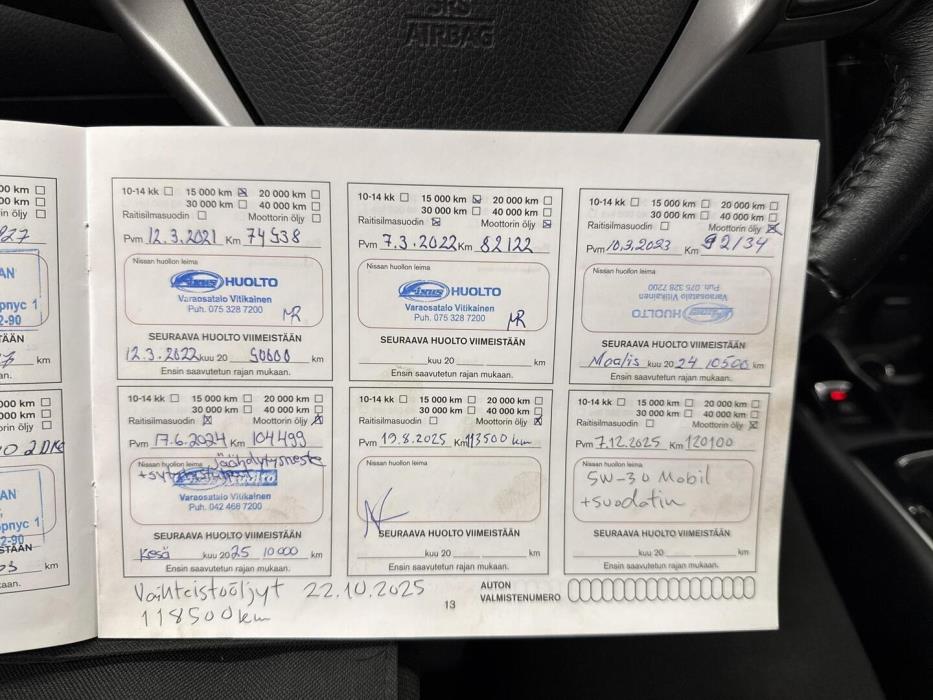 SRS
AIRBAG
00 km
00 km
in öljy
927
AN
рпус 1
2-90
TÄÄN
km
an.
10-14 kk 15 000 km 20 000 km
30 000 km 40 000 km
Raitisilmasuodin Moottorin öljy
Pvm 12.3.2021 Km 74538
Nissan huollon leima
Fixus HUOLTO
Varaosatalo Vitikainen
Puh. 075 328 7200
MR
SEURAAVA HUOLTO VIIMEISTÄÄN
12.3.2022 kuu 20 90000 km
Ensin saavutetun rajan mukaan.
10-14 kk 15 000 km 20 000 km
30 000 km 40 000 km
Raitisilmasuodin Moottorin öljy
Pvm 7.3.2022 Km 82122
Nissan huollon leima
Fixus HUOLTO
Varaosatalo Vitikainen
Puh. 075 328 7200
MR
SEURAAVA HUOLTO VIIMEISTÄÄN
kuu 20 km
Ensin saavutetun rajan mukaan.
10-14 kk 15 000 km 20 000 km
30 000 km 40 000 km
Raitisilmasuodin Moottorin öljy
Pvm 10.3.2023 Km 92134
Nissan huollon leima
Puh. 075 328 7200
Varaosatalo Vitikainen
Fixus HUOLTO
SEURAAVA HUOLTO VIIMEISTÄÄN
Maalis kuu 20 24 10500 km
Ensin saavutetun rajan mukaan.
00 km
00 km
orin öljy
AN
рпус 1
2-90
STÄÄN
km
kaan.
10-14 kk 15 000 km 20 000 km
30 000 km 40 000 km
Raitisilmasuodin Moottorin öljy
Pvm 17.6.2024 Km 104499
Nissan huollon leima Jäähdytysneste
Varaosatalo Vitikainen
Puh. 042 468 7200
SEURAAVA HUOLTO VIIMEISTÄÄN
Kesä kuu 20 25 10 000 km
Ensin saavutetun rajan mukaan.
10-14 kk 15 000 km 20 000 km
30 000 km 40 000 km
Raitisilmasuodin Moottorin öljy
Pvm 19.8.2025 Km 113500 km
Nissan huollon leima
SEURAAVA HUOLTO VIIMEISTÄÄN
kuu 20 km
Ensin saavutetun rajan mukaan.
10-14 kk 15 000 km 20 000 km
30 000 km 40 000 km
Raitisilmasuodin Moottorin öljy
Pvm 7.12.2025 Km 120100
Nissan huollon leima
5W-30 Mobil
+suodatin
SEURAAVA HUOLTO VIIMEISTÄÄN
kuu 20 km
Ensin saavutetun rajan mukaan.
Vaihteistoöljyt 22.10.2025
118500km
13
AUTON
VALMISTENUMERO